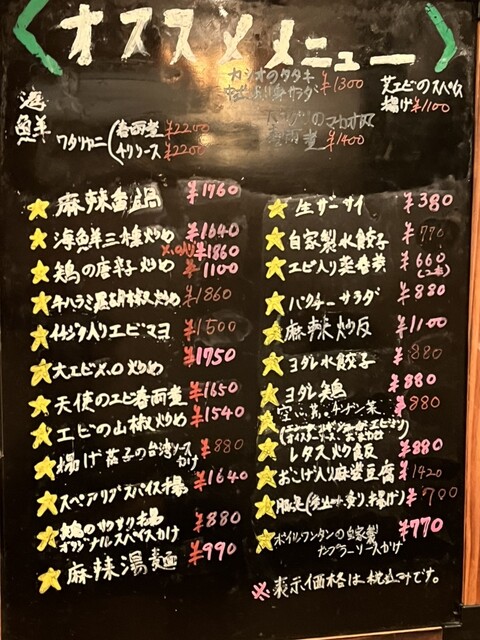 オススメメニュー
カツオのタタキ
サラダ ¥1300
芝エビのスパイス
揚げ ¥1100
海鮮
ワタリガニ
春雨煮 ¥2200
チリソース ¥2200
春雨煮 ¥1400
麻辣香鍋 ¥1760
海鮮三種炒め ¥1640
¥1860
鶏の唐辛子炒め ¥1100
牛ハラミ黒胡椒炒め ¥1860
イチジク入りエビマヨ ¥1500
大エビX.O炒め ¥1750
天使のエビ春雨煮 ¥1650
エビの山椒炒め ¥1540
揚げ茄子の台湾ソースかけ ¥880
スペアリブスパイス揚 ¥1640
鶏のサクサク揚
オリジナルスパイスかけ ¥880
麻辣湯麺 ¥990
生ザーサイ ¥380
自家製水餃子 ¥770
エビ入り春巻 ¥660
(2本)
パクチーサラダ ¥880
麻辣炒飯 ¥1100
ヨダレ水餃子 ¥880
ヨダレ鶏 ¥880
空心菜 ¥880
レタス炒飯 ¥880
おこげ入り麻婆豆腐 ¥1420
¥700
ボイルワンタンの自家製
ナンプラーソースかけ ¥770
※表示価格は税込みです。